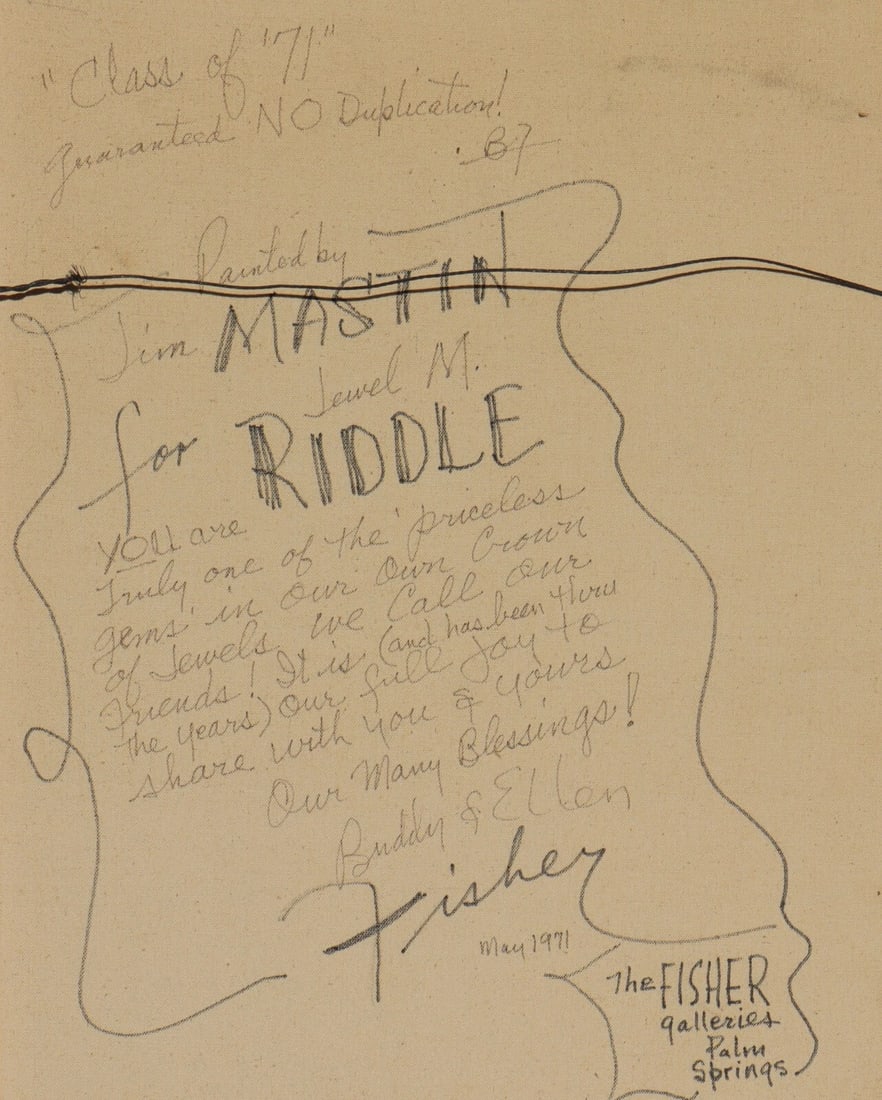 "Class of '71"
Guaranteed NO Duplication!
B7
Painted by
Jim MASTIN
Jewel M.
for RIDDLE
YOU are
Truly one of the priceless
gems in Our Own Crown
of Jewels we Call Our
Friends! It is (and has been thru
the years) Our full Joy to
share with you & yours
Our Many Blessings!
Buddy & Ellen
Fisher
May 1971
The FISHER
galleries
Palm
Springs